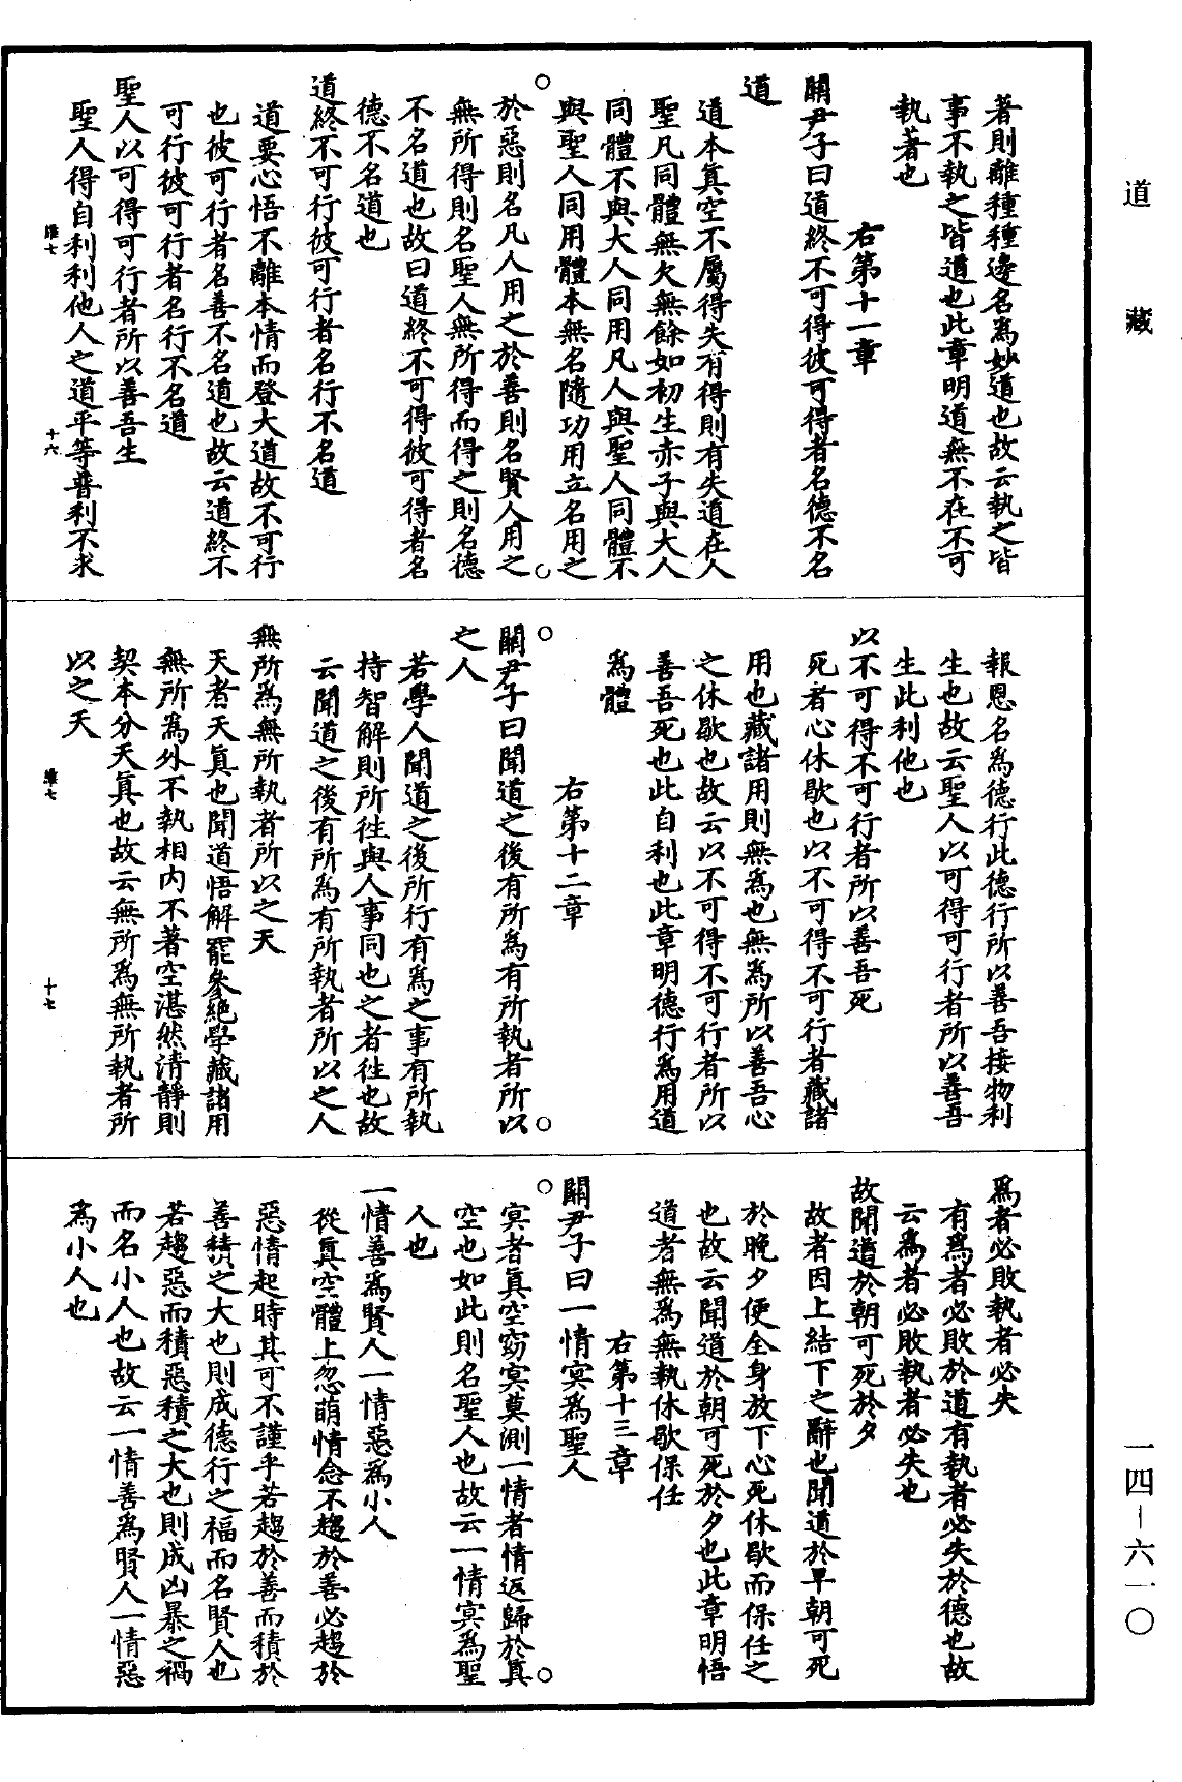 道藏
一四-六一〇
著則離種種邊名爲妙道也故云執之皆
事不執之皆道也此章明道無不在不可
執著也
右第十一章
關尹子曰道終不可得彼可得者名德不名
道
道本真空不屬得失有得則有失道在人
聖凡同體無欠無餘如初生赤子與大人
同體不與大人同用凡人與聖人同體不
與聖人同用體本無名隨功用立名用之
於惡則名凡人用之於善則名賢人用之
無所得則名聖人無所得而得之則名德
不名道也故曰道終不可得彼可得者名
德不名道也
道終不可行彼可行者名行不名道
道要心悟不離本情而登大道故不可行
也彼可行者名善不名道也故云道終不
可行彼可行者名行不名道
聖人以可得可行者所以善吾生
聖人得自利利他人之道平等普利不求
維七
十六
報恩名爲德行此德行所以善吾接物利
生也故云聖人以可得可行者所以善吾
生此利他也
以不可得不可行者所以善吾死
死者心休歇也以不可得不可行者藏諸
用也藏諸用則無爲也無爲所以善吾心
之休歇也故云以不可得不可行者所以
善吾死也此自利也此章明德行爲用道
爲體
右第十二章
關尹子曰聞道之後有所爲有所執者所以
之人
若學人聞道之後所行有爲之事有所執
持智解則所徃與人事同也之者徃也故
云聞道之後有所爲有所執者所以之人
無所爲無所執者所以之天
天者天真也聞道悟解罷參絕學藏諸用
無所爲外不執相內不著空湛然清靜則
契本分天真也故云無所爲無所執者所
以之天
維七
十七
爲者必敗執者必失
有爲者必敗於道有執者必失於德也故
云爲者必敗執者必失也
故聞道於朝可死於夕
故者因上結下之辭也聞道於早朝可死
於晚夕便全身放下心死休歇而保任之
也故云聞道於朝可死於夕也此章明悟
道者無爲無執休歇保任
右第十三章
關尹子曰一情冥爲聖人
冥者真空窈冥莫測一情者情返歸於真
空也如此則名聖人也故云一情冥爲聖
人也
一情善爲賢人一情惡爲小人
從真空體上忽萌情念不趨於善必趨於
惡情起時其可不謹乎若趨於善而積於
善積之大也則成德行之福而名賢人也
若趨惡而積惡積之大也則成凶暴之禍
而名小人也故云一情善爲賢人一情惡
爲小人也